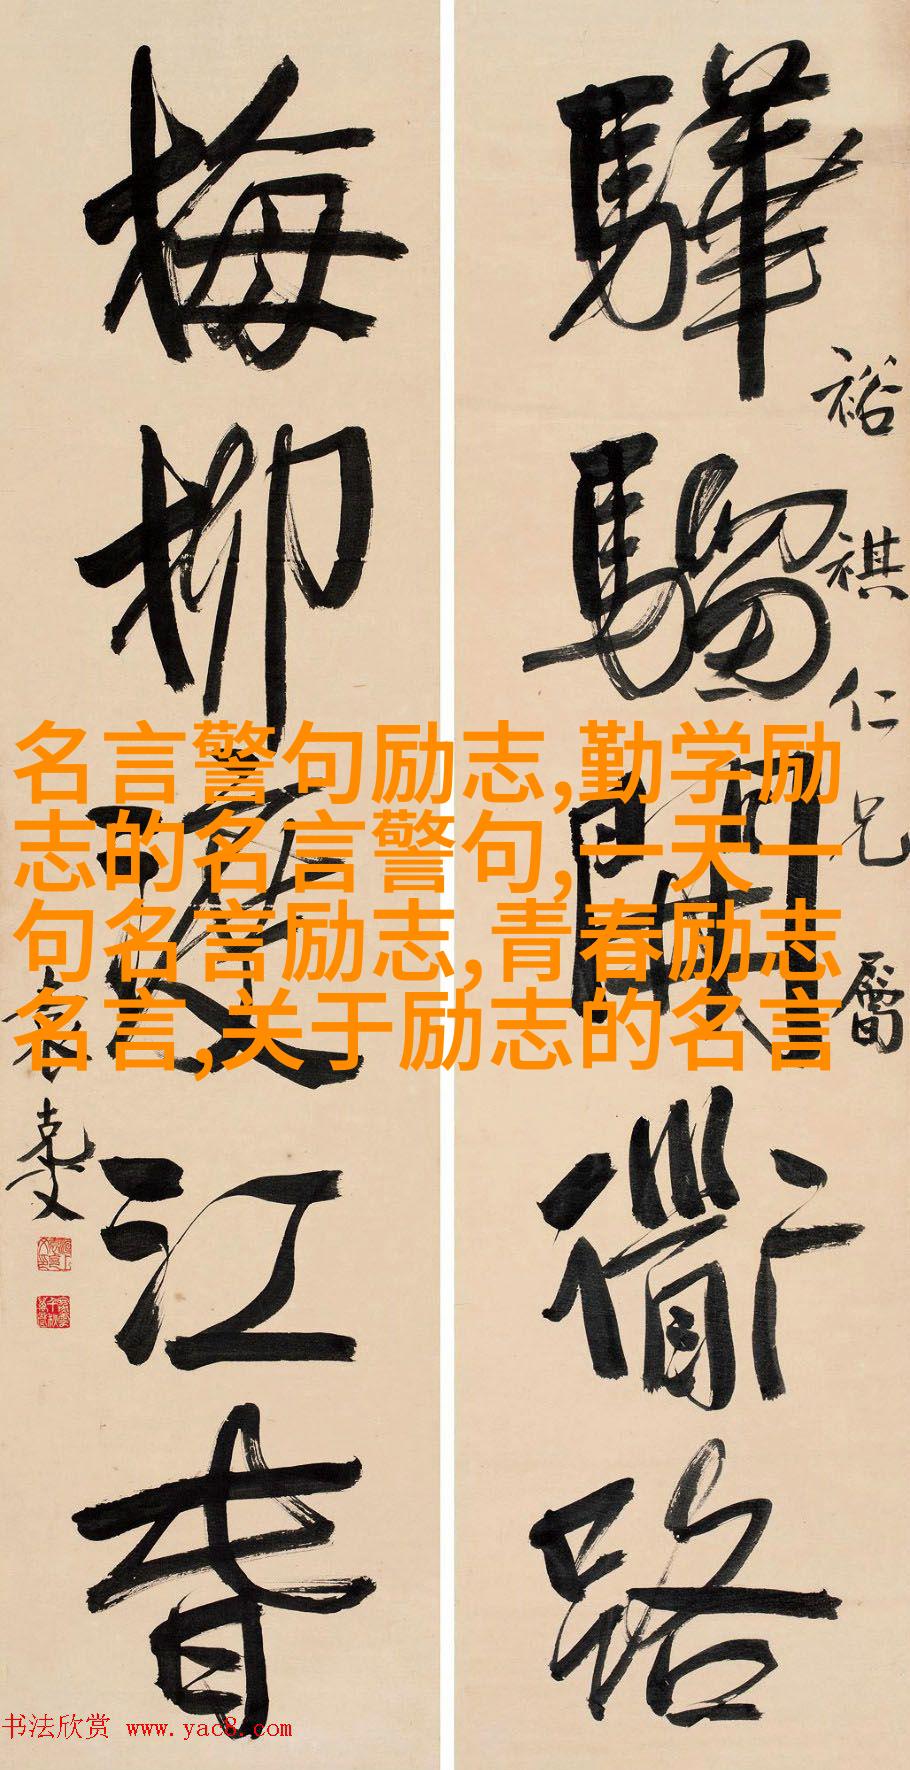 裕祺仁兄屬
驊騮開衜路
梅柳渡江春
袁克文
名言警句励志,勤学励
志的名言警句,一天一
句名言励志,青春励志
名言,关于励志的名言
书法欣赏 www.yac8.com